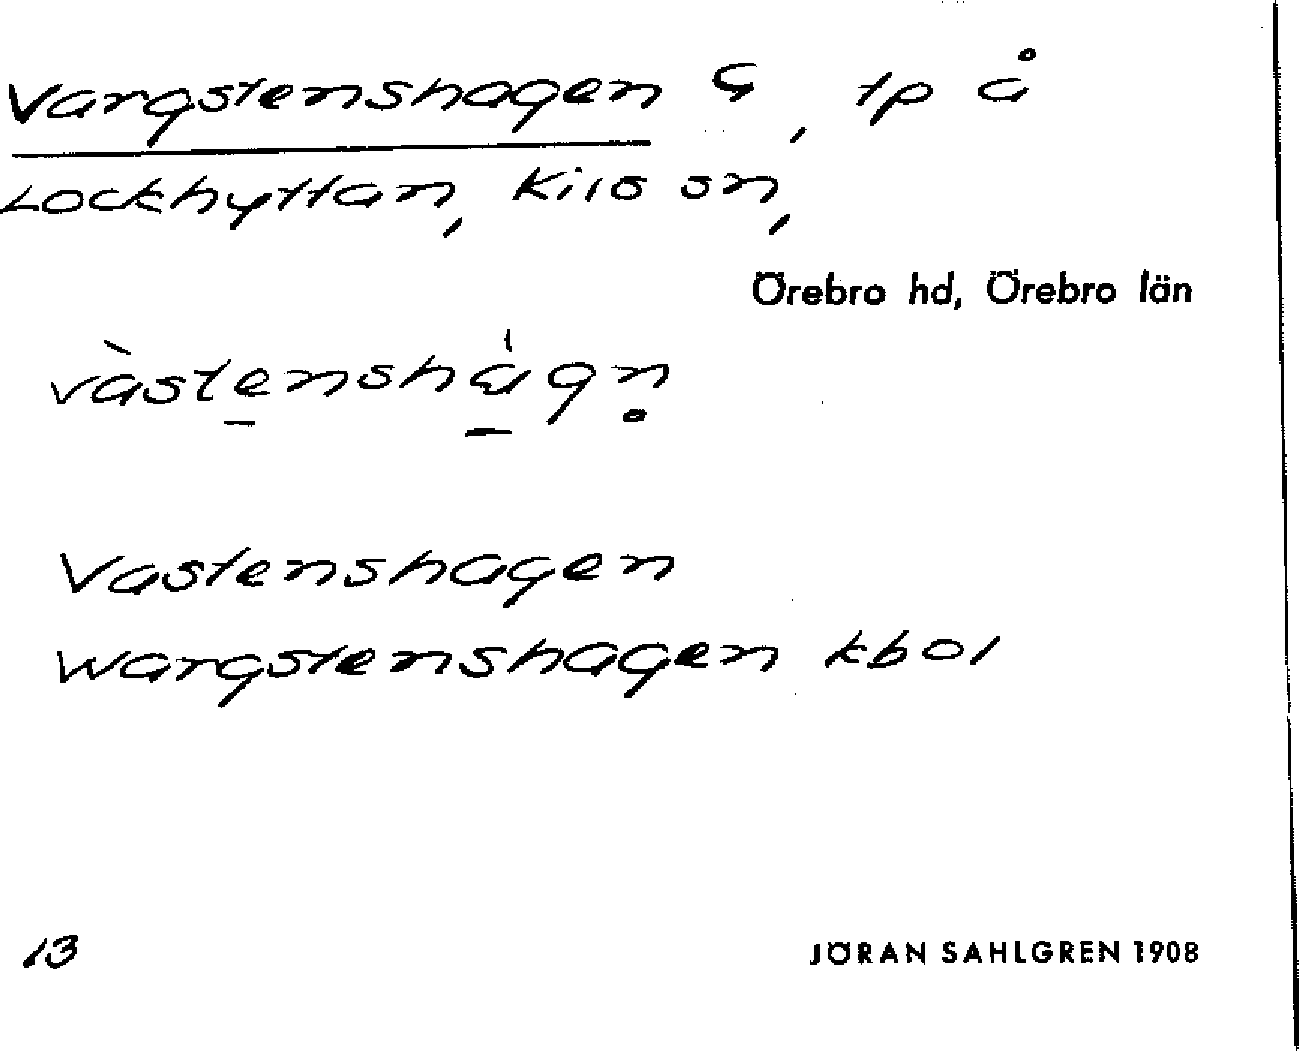 Vargstenshagen G, tp å
Lockhyttan, Kils sn,
Örebro hd, Örebro län
vàstenshágn̥
Vastenshagen
Wargstenshagen kbol
13
JÖRAN SAHLGREN 1908